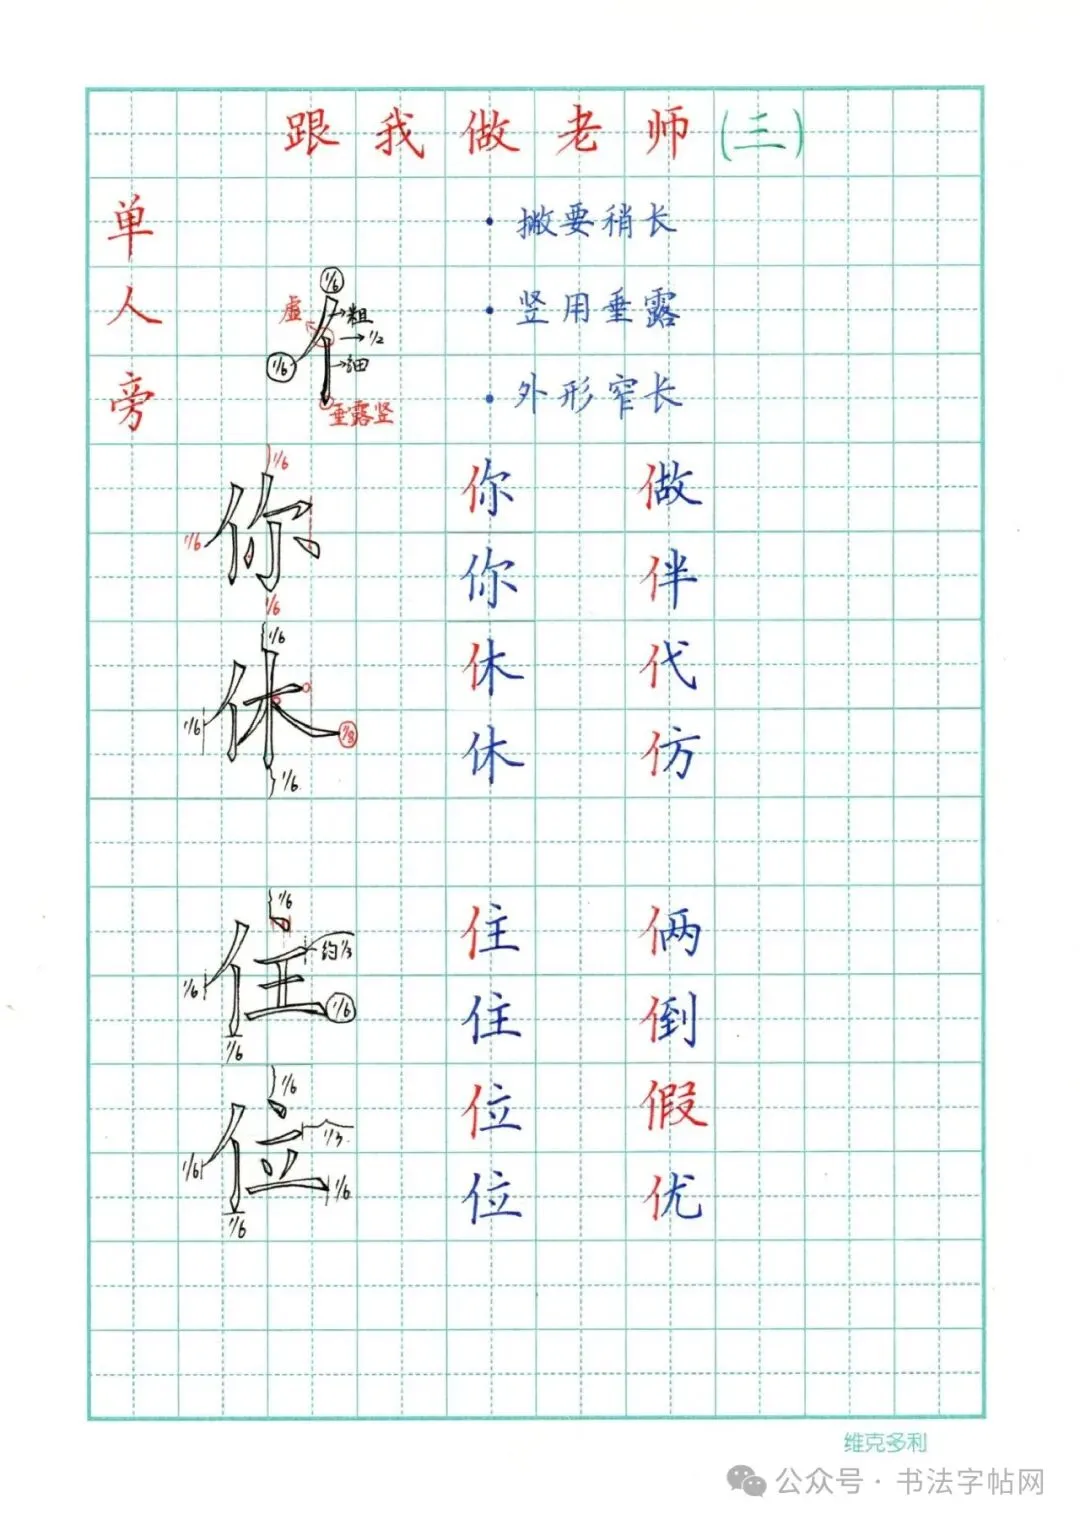 跟我做老师(三)
单人旁
• 撇要稍长
• 竖用垂露
• 外形窄长
1/6
虚
粗
1/2
1/6
细
垂露竖
1/6
你
1/6
1/6
你 做
你 伴
1/6
休
1/6
1/8
1/6
休 代
休 仿
1/6
住
约1/3
1/6
1/6
1/6
住 俩
住 倒
1/6
位
1/3
1/6
1/6
1/6
位 假
位 优
维克多利
公众号·书法字帖网